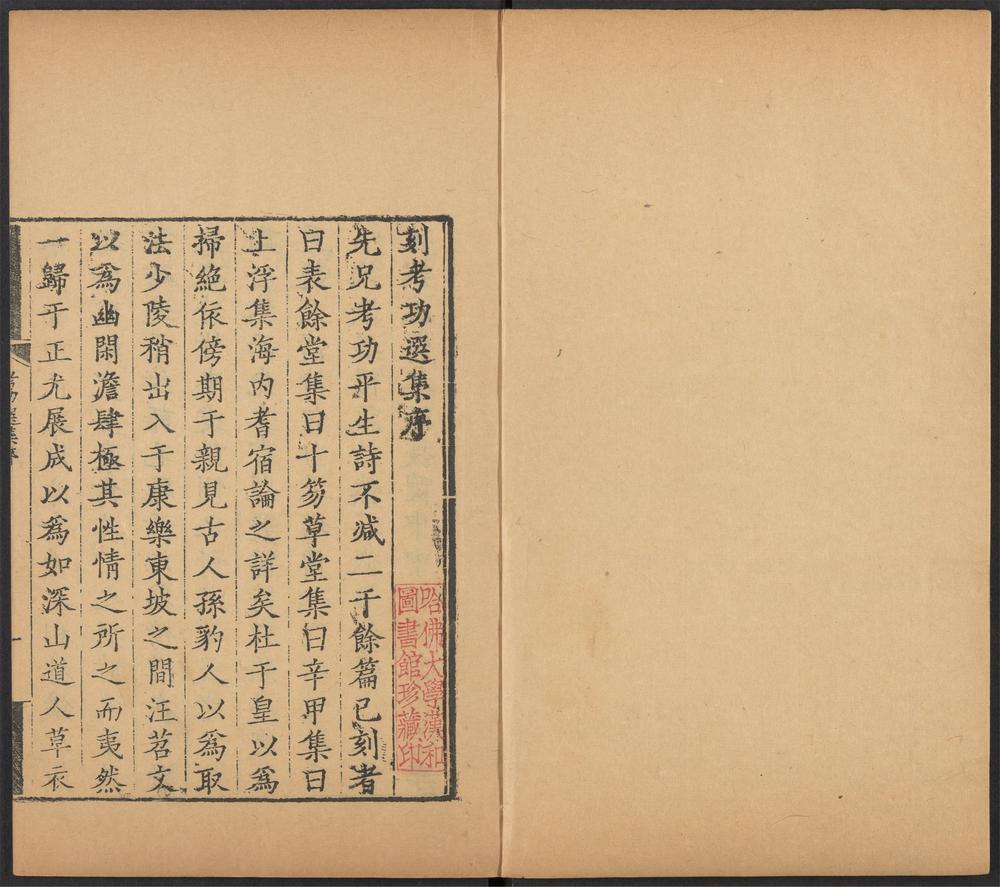 刻考功選集序
先兄考功平生詩不減二千餘篇已刻者
曰表餘堂集曰十笏草堂集曰辛甲集曰
上浮集海內耆宿論之詳矣杜于皇以爲
掃絶依傍期于親見古人孫豹人以爲取
法少陵稍出入于康樂東坡之間汪苕文
以爲幽閑澹肆極其性情之所之而夷然
一歸于正尤展成以爲如深山道人草衣
哈佛大學漢和
圖書館珍藏印